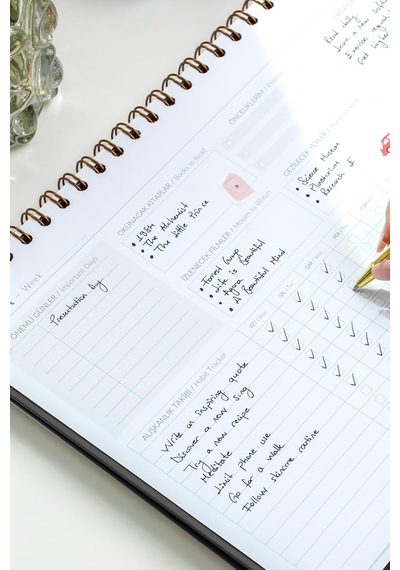 Read daily
learn a new
Exercise
- Week
ÖNEMLİ GÜNLER / Important Days
Presentation Day
OKUNACAK KİTAPLAR / Books to Read
• 1984
• The Alchemist
• The Little Prince
İZLENECEK FİLMLER / Movies to Watch
• Forrest Gump
• Life is Beautiful
• Agora
• A Beautiful Mind
ÖNCELİKLERİM /
GEZİLECEK YERLER /
• Science Museum
• Planetarium
• Research
ALIŞKANLIK TAKİBİ / Habit Tracker
PZT /
SAL /
ÇAR /
Write an inspiring quote
Discover a new song
Try a new recipe
Meditate
Limit phone use
Go for a walk
Follow skincare routine